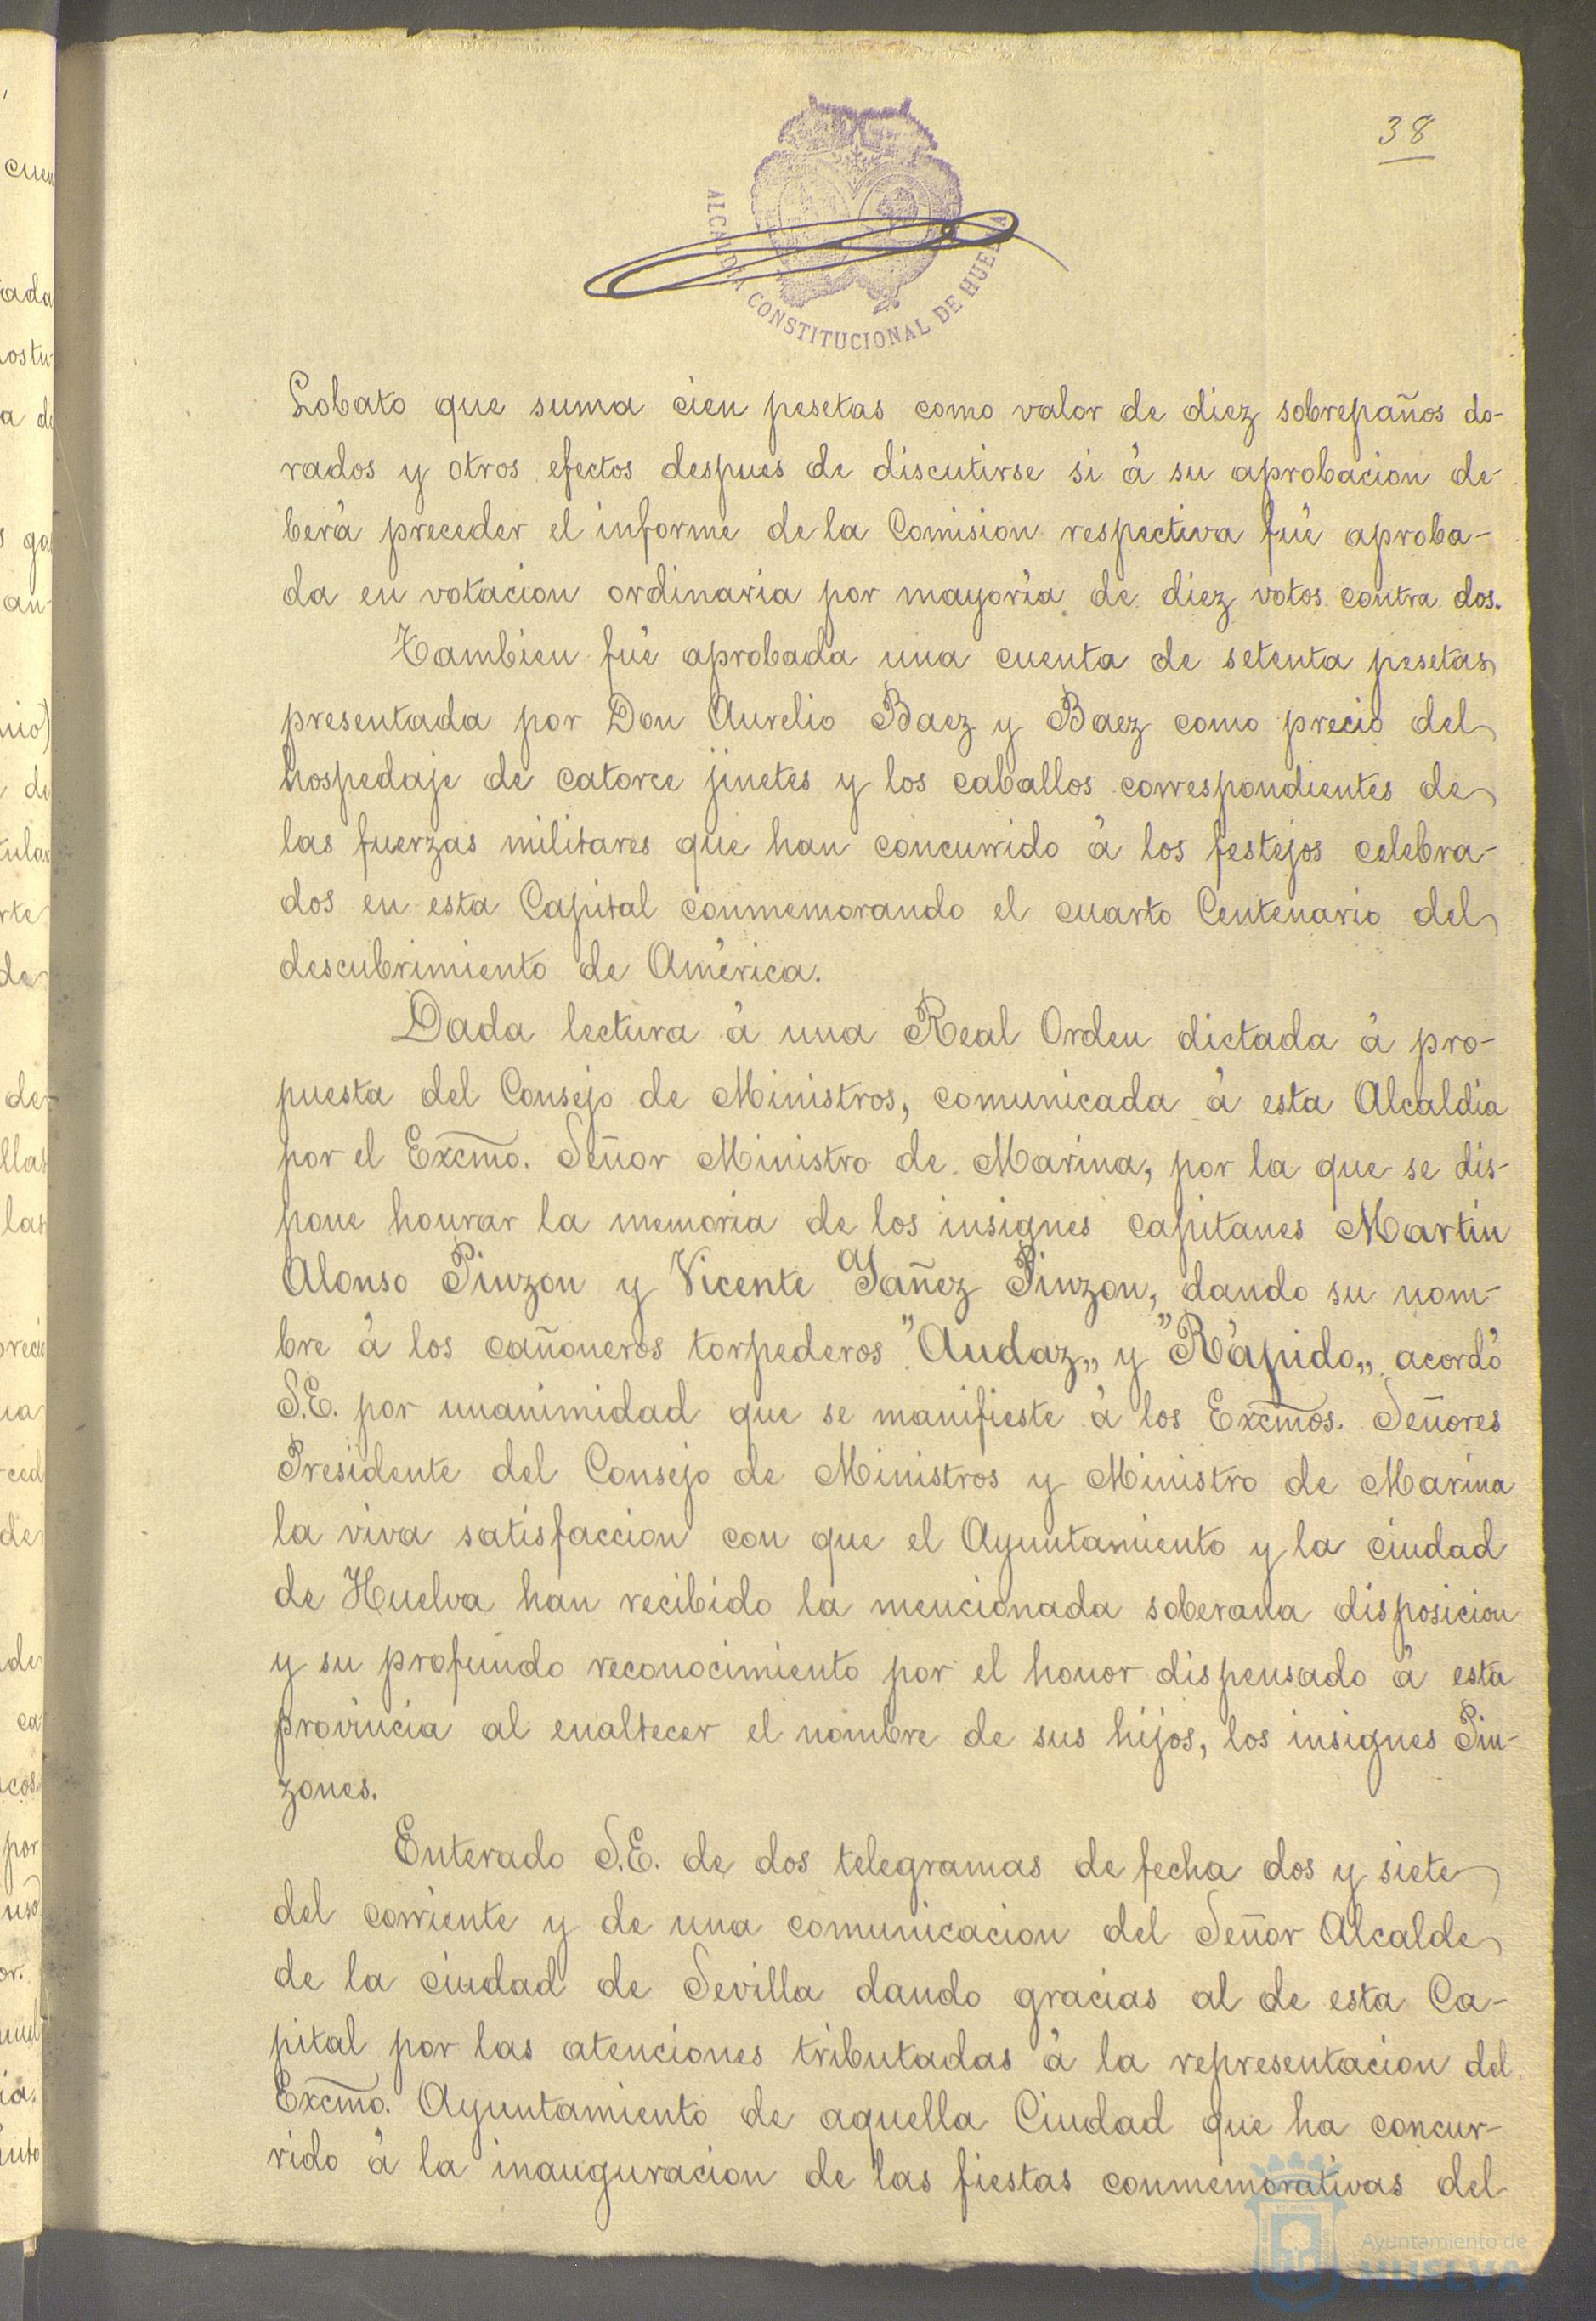 38
ALCALDIA CONSTITUCIONAL DE HUELVA
Lobato que suma cien pesetas como valor de diez sobrepaños do-
rados y otros efectos despues de discutirse si á su aprobacion de-
berá preceder el informe de la Comision respectiva fué aproba-
da en votacion ordinaria por mayoría de diez votos contra dos.
Tambien fué aprobada una cuenta de setenta pesetas
presentada por Don Aurelio Baez y Baez como precio del
hospedaje de catorce jinetes y los caballos correspondientes de
las fuerzas militares que han concurrido á los festejos celebra-
dos en esta Capital conmemorando el cuarto Centenario del
descubrimiento de América.
Dada lectura á una Real Orden dictada á pro-
puesta del Consejo de Ministros, comunicada á esta Alcaldía
por el Excmo. Señor Ministro de Marina, por la que se dis-
pone honrar la memoria de los insignes capitanes Martin
Alonso Pinzon y Vicente Yañez Pinzon, dando su nom-
bre á los cañoneros torpederos "Audaz„ y "Rápido„ acordó
S.E. por unanimidad que se manifieste á los Excmos. Señores
Presidente del Consejo de Ministros y Ministro de Marina
la viva satisfaccion con que el Ayuntamiento y la ciudad
de Huelva han recibido la mencionada soberana disposicion
y su profundo reconocimiento por el honor dispensado á esta
provincia al enaltecer el nombre de sus hijos, los insignes Pin-
zones.
Enterado S.E. de dos telegramas de fecha dos y siete
del corriente y de una comunicacion del Señor Alcalde
de la ciudad de Sevilla dando gracias al de esta Ca-
pital por las atenciones tributadas á la representacion del
Excmo. Ayuntamiento de aquella Ciudad que ha concur-
rido á la inauguracion de las fiestas conmemorativas del
Ayuntamiento de
HUELVA